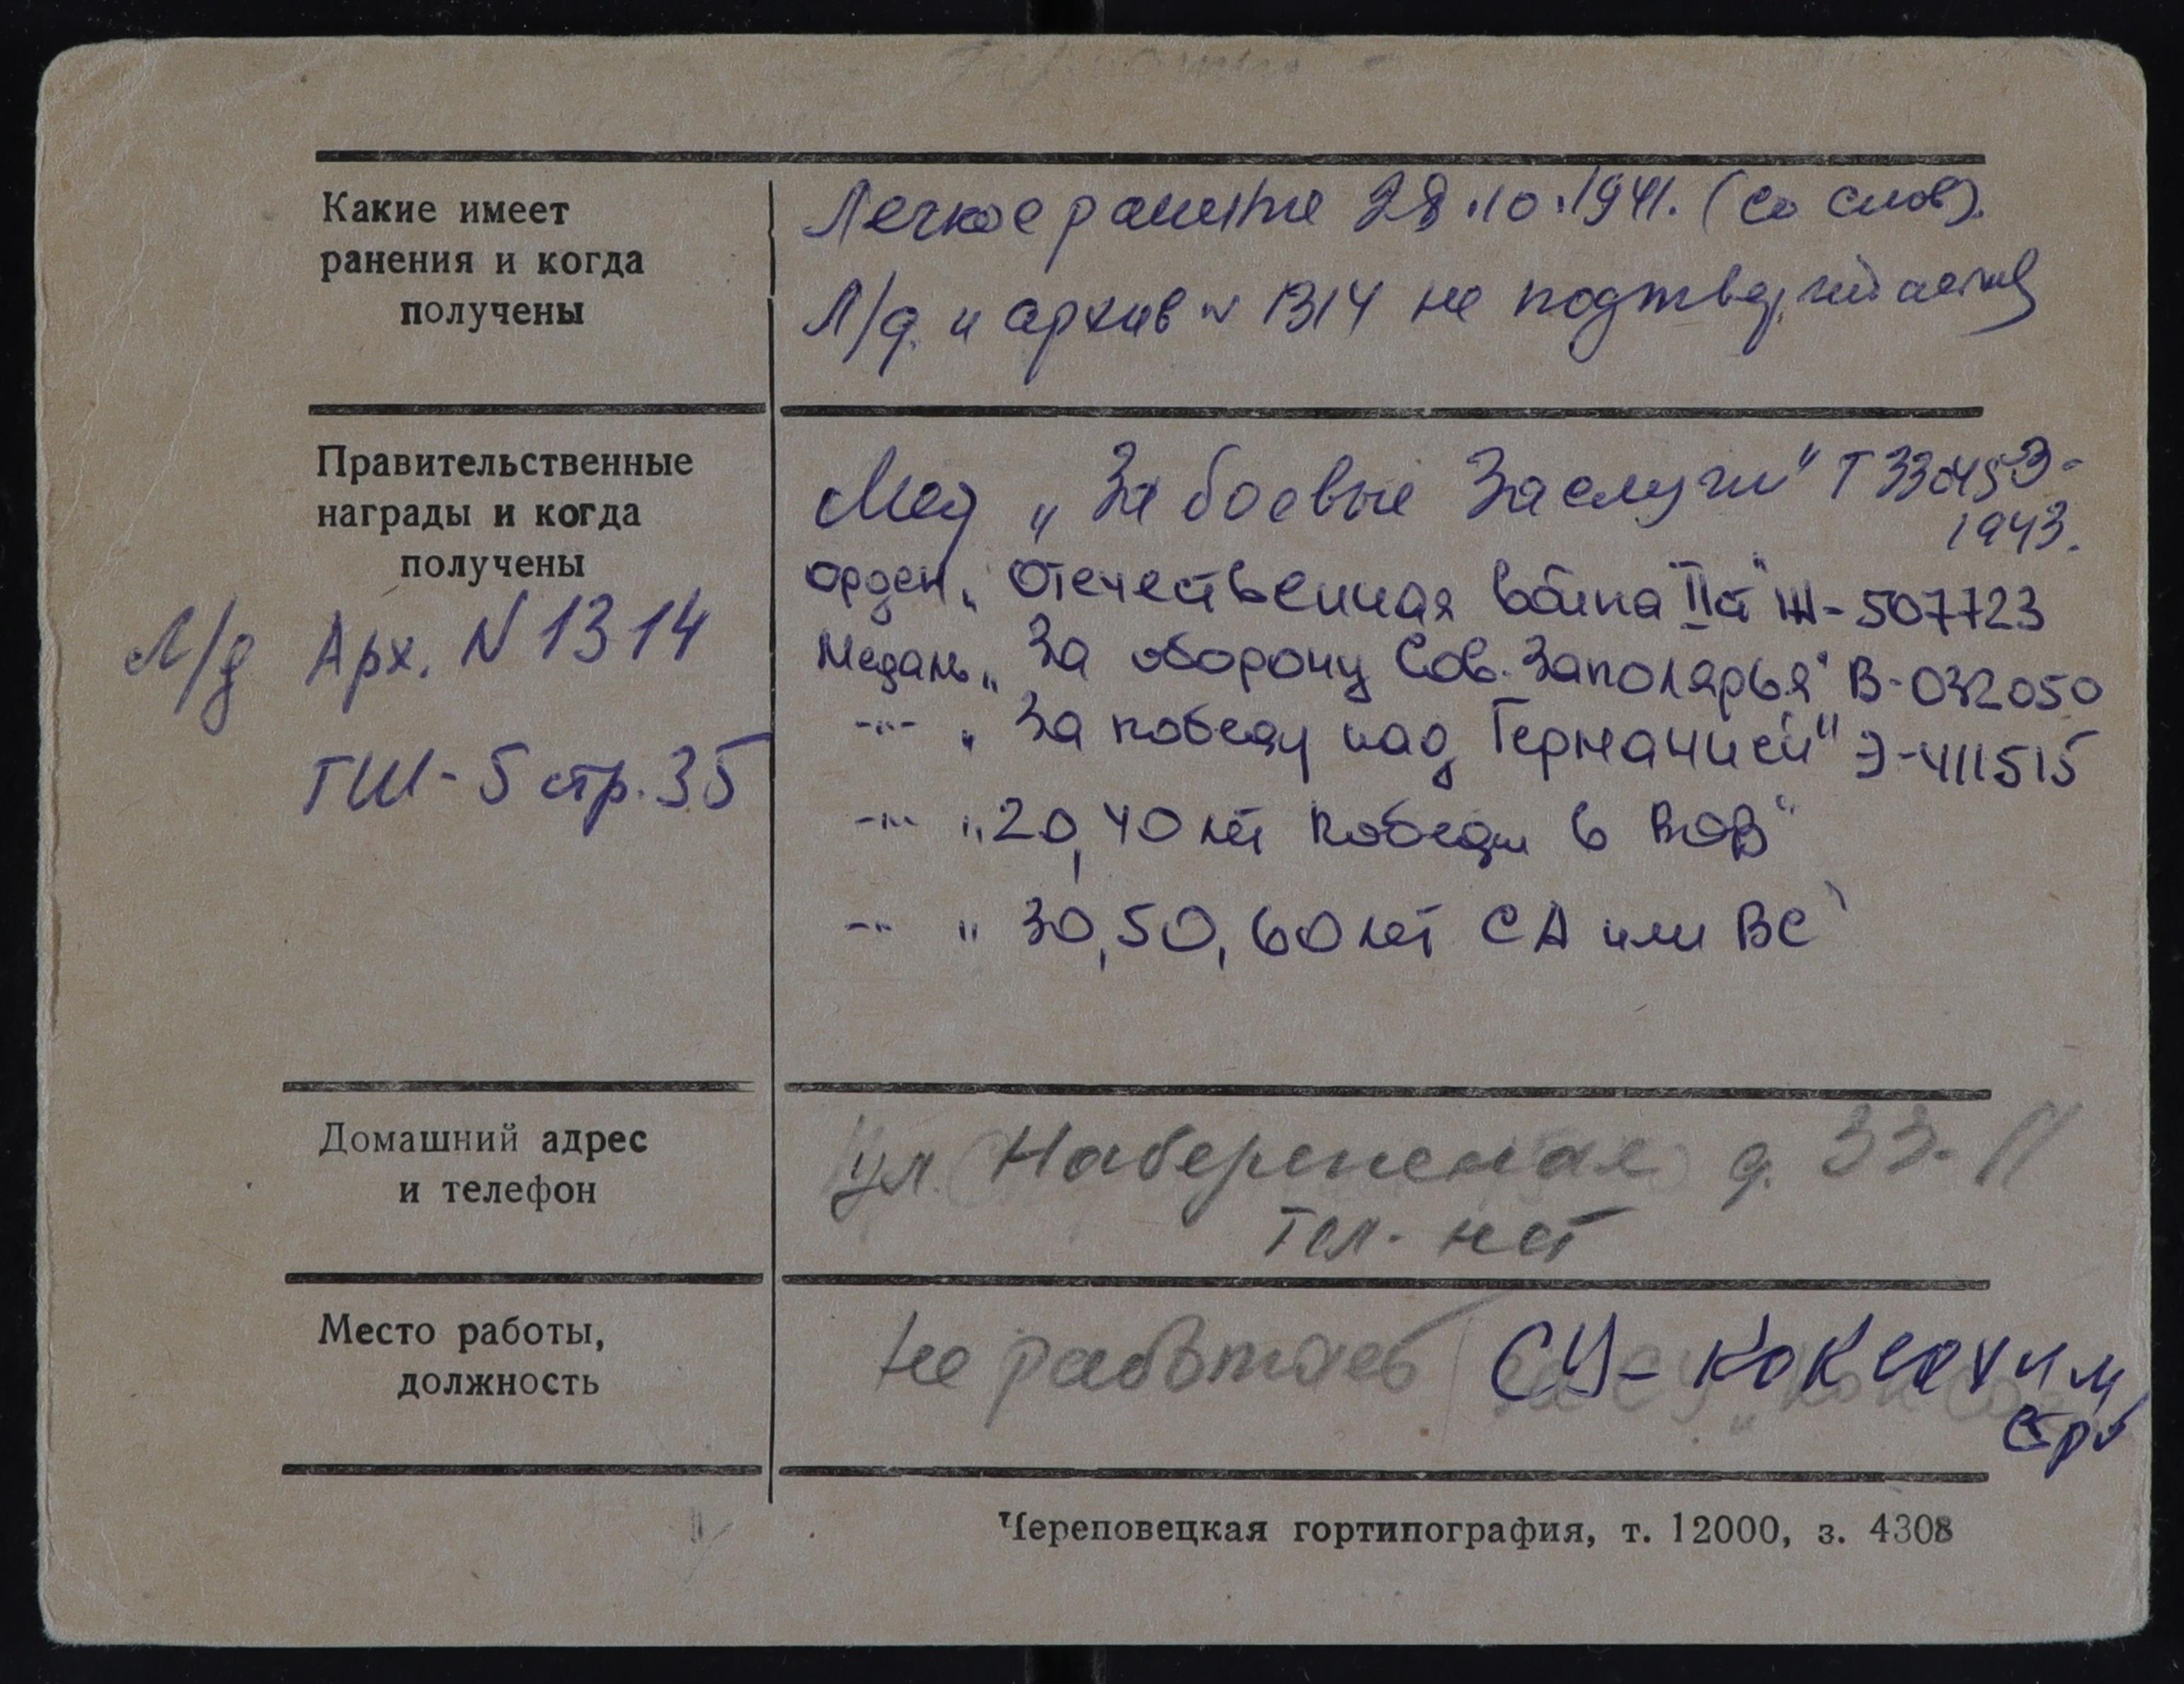 Какие имеет
ранения и когда
получены
Легкое ранение 28.10.1941. (со слов).
Л/д. и архив N 1314 не подтверждает
Правительственные
награды и когда
получены
Л/д Арх. N 1314
ГШ-5 стр. 35
Мед „За боевые Заслуги"
1943.
орден „Отечественная война IIст" Ж-507723
Медаль „За оборону Сов. Заполярья" В-032050
-"- „За победу над Германией" Э-411515
-"- „20, 40 лет Победы в ВОВ"
-"- „30, 50, 60 лет СА или ВС"
Домашний адрес
и телефон
ул. Набережная д. 33-
тел. нет
Место работы,
должность
не работает СУ-Коксохим
Череповецкая гортипография, т. 12000, з. 4308